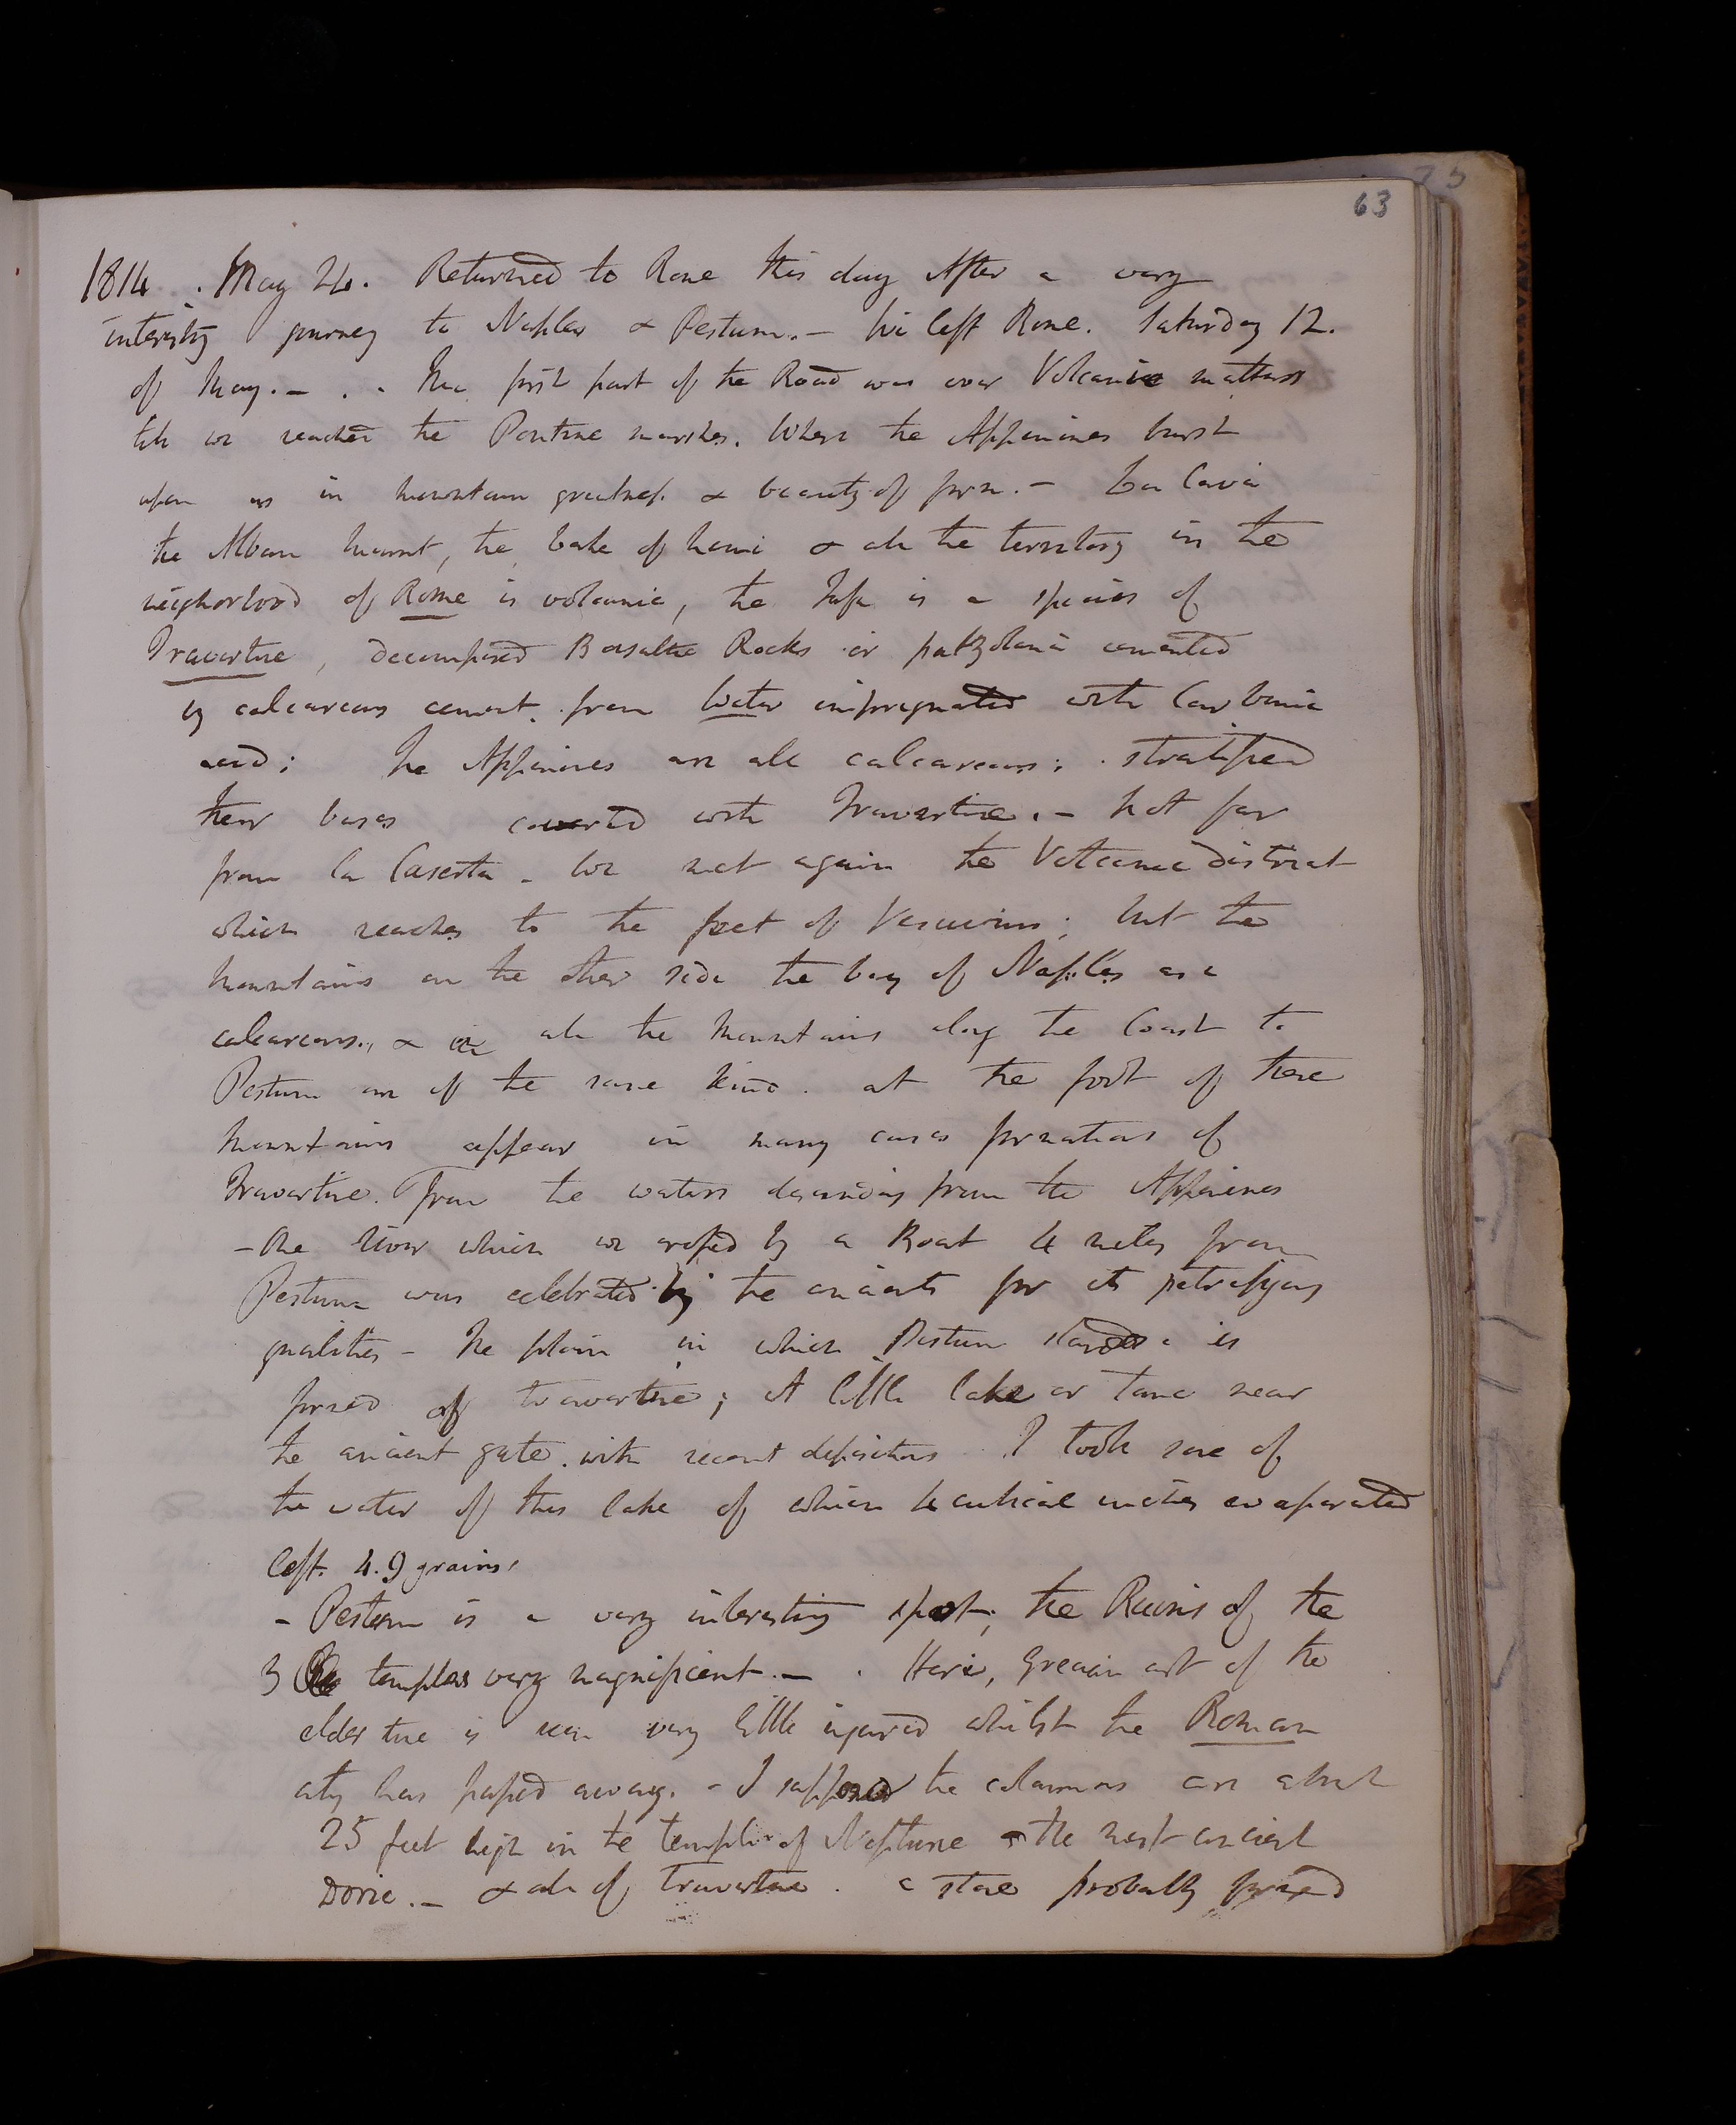 63
1814. May 24. Returned to Rome this day After a very
interesting journey to Naples & Pestum. - We left Rome. Saturday 12.
of May. - . - The first part of the Road was over Volcanic matters
till we reached the Pontine marshes. Where the Appenines burst
upon us in mountain greatness & beauty of form. - La Cava
the Alban mount, the Lake of Nemi & all the territory in the
neighorhood of Rome is volcanic, the Tufa is a species of
Travertine, decomposed Basaltic Rocks or putzolana cemented
by calcareous cement. from Water impregnated with Carbonic
acid; The Appenines are all calcareous; stratified
their bases covered with Travertine. - Not far
from La Caserta - we met again the Volcanic district
which reaches to the feet of Vesuvius; but the
mountains on the other side the bay of Naples are
calcareous, & all the mountains along the Coast to
Pestum are of the same kind. at the foot of these
mountains appear in many cases formations of
Travertine. From the waters descending from the Appenines
- The River which we crossed by a Boat 4 miles from
Pestum was celebrated by the ancients for its petrifying
qualities - The plain in which Pestum stands is
formed of travertine; A little lake or near
the ancient gate. with recent depositions I took some of
the water of this lake of which 4 cubical inches evaporated
left. 4.9 grains,
- Pestum is a very interesting spot; the Ruins of the
3 temples very magnificent. - . Here, Grecian art of the
elder time is seen very little injured whilst the Roman
city has passed away. - I suppose the columns are about
25 feet high in the temple of Neptune - the most ancient
Doric. - & all of travertine. a stone probably formed